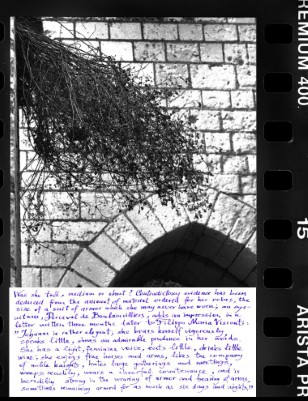 Was she tall, medium or short? Contradictory evidence has been
deduced from the amount of material ordered for her robes, the
size of a suit of armor which she may never have worn; an eye-
witness, Perceval de Boulainvilliers, adds an impression, in a
letter written three months later to Filippo Maria Visconti:
"Jehanne is rather elegant; she bears herself vigorously,
speaks little, shows an admirable prudence in her words.
She has a light, feminine voice, eats little, drinks little
wine; she enjoys fine horses and arms, likes the company
of noble knights, hates large gatherings and meetings,
weeps readily, wears a cheerful countenance, and is
incredibly strong in the wearing of armor and bearing of arms,
sometimes remaining armed for as much as six days and nights."
REMIUM 400
15
ARISTA PR